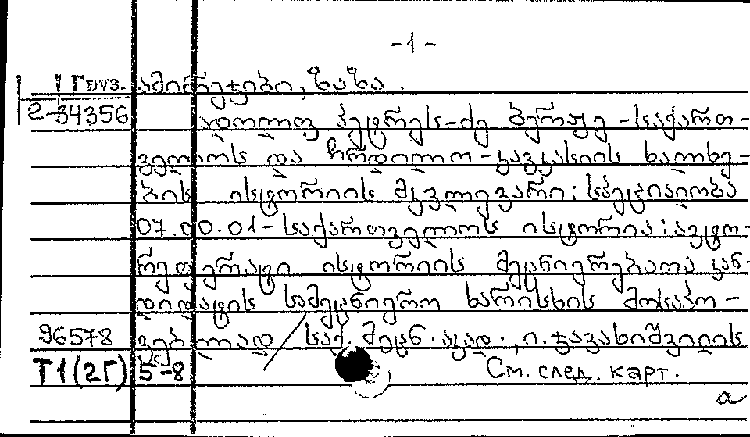 -1-
Груз. ამირეჯიბი, ზაზა.
2-34356 ადოლფ პეტრეს-ძე ბერჟე - საქართ-
ველოს და ჩრდილო-კავკასიის ხალხე-
ბის ისტორიის მკვლევარი: სპეციალობა
07.00.01 - საქართველოს ისტორია: ავტო-
რეფერატი ისტორიის მეცნიერებათა კან-
დიდატის სამეცნიერო ხარისხის მოსაპო-
96578 ვებლად / საქ. მეცნ. აკად., ი. ჯავახიშვილის
Т1(2Г) 5-8 См. след. карт.
a